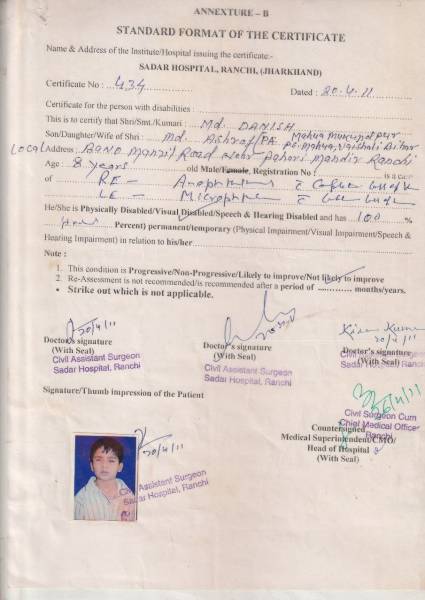 ANNEXTURE – B
STANDARD FORMAT OF THE CERTIFICATE
Name & Address of the Institute/Hospital issuing the certificate:-
SADAR HOSPITAL, RANCHI, (JHARKHAND)
Certificate No : 434 Dated : 20.4.11
Certificate for the person with disabilities :
This is to certify that Shri/Smt./Kumari : Md. DANISH
Son/Daughter/Wife of Shri : Md. Ashraf
Local Address Road near Pahari Mandir Ranchi
Age : 8 years old Male/Female, Registration No : is a
of RE –
LE –
He/She is Physically Disabled/Visual Disabled/Speech & Hearing Disabled and has 100 %
Percent) permanent/temporary (Physical Impairment/Visual Impairment/Speech &
Hearing Impairment) in relation to his/her
Note :
1. This condition is Progressive/Non-Progressive/Likely to improve/Not likely to improve
2. Re-Assessment is not recommended/is recommended after a period of ............ months/years.
• Strike out which is not applicable.
20/4/11
Doctor's signature Doctor's signature Doctor's signature
(With Seal) (With Seal) (With Seal)
Civil Assistant Surgeon Civil Assistant Surgeon Civil Assistant Surgeon
Sadar Hospital, Ranchi Sadar Hospital, Ranchi Sadar Hospital, Ranchi
Signature/Thumb impression of the Patient
Civil Surgeon Cum
Chief Medical Officer
Ranchi
Countersigned
Medical Superintendent/CMO/
Head of Hospital
(With Seal)
20/4/11
Civil Assistant Surgeon
Sadar Hospital, Ranchi